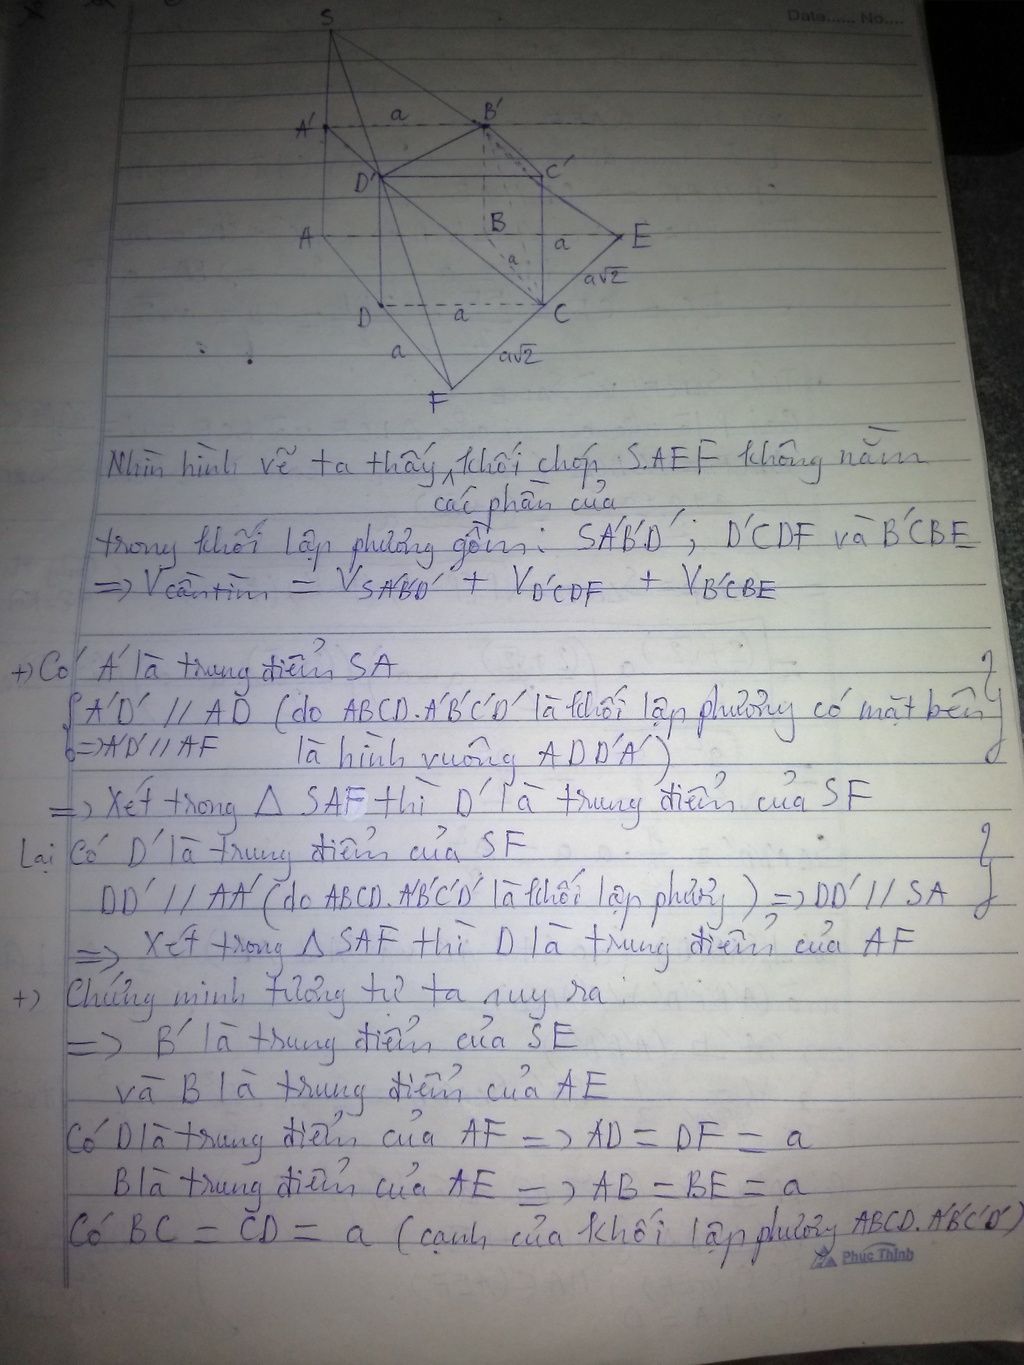 Date...... No....
S
A'
a
B'
D'
C'
A
B
a
E
a
a√2
D
a
C
a
a√2
F
Nhìn hình vẽ ta thấy các phần của khối chóp S.AEF không nằm
trong khối lập phương gồm: SA'B'D'; D'CDF và B'CBE
=> Vcần tìm = VSA'B'D' + VD'CDF + VB'CBE
+) Có A' là trung điểm SA
A'D' // AD (do ABCD.A'B'C'D' là khối lập phương có mặt bên
=> A'D' // AF là hình vuông ADD'A')
=> Xét trong △ SAF thì D' là trung điểm của SF
Lại có D' là trung điểm của SF
DD' // AA' (do ABCD.A'B'C'D' là khối lập phương) => DD' // SA
=> Xét trong △ SAF thì D là trung điểm của AF
+) Chứng minh tương tự ta suy ra
=> B' là trung điểm của SE
và B là trung điểm của AE
Có D là trung điểm của AF => AD = DF = a
B là trung điểm của AE => AB = BE = a
Có BC = CD = a (cạnh của khối lập phương ABCD.A'B'C'D')
Phúc Thịnh